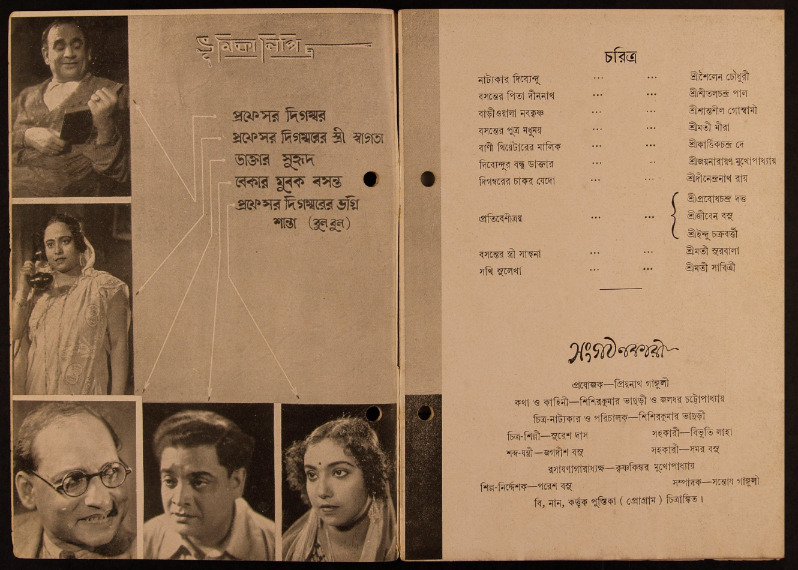 ভূমিকালিপি
প্রফেসর দিগম্বর
প্রফেসর দিগম্বরের স্ত্রী স্বাগতা
ডাক্তার সুহৃদ
বেকার যুবক বসন্ত
প্রফেসর দিগম্বরের ভগ্নি
শান্তা (বুলবুল)
চরিত্র
নাট্যকার দিব্যেন্দু ... ... শ্রীশৈলেন চৌধুরী
বসন্তের পিতা দীননাথ ... ... শ্রীশীতলচন্দ্র পাল
বাড়ীওয়ালা নবকৃষ্ণ ... ... শ্রীশান্তশীল গোস্বামী
বসন্তের পুত্র মধুময় ... ... শ্রীমতী মীরা
বাণী থিয়েটারের মালিক ... ... শ্রীকার্ত্তিকচন্দ্র দে
দিব্যেন্দুর বন্ধু ডাক্তার ... ... শ্রীজয়নারায়ণ মুখোপাধ্যায়
দিগম্বরের চাকর যেদো ... ... শ্রীদীনেন্দ্রনাথ রায়
শ্রীপ্রবোধচন্দ্র দত্ত
প্রতিবেশীত্রয় ... ... শ্রীজীবেন বসু
শ্রীইন্দু চক্রবর্ত্তী
বসন্তের স্ত্রী সান্ত্বনা ... ... শ্রীমতী সুরবালা
সখি সুলেখা ... ... শ্রীমতী সাবিত্রী
সংগঠনকারী
প্রযোজক—প্রিয়নাথ গাঙ্গুলী
কথা ও কাহিনী—শিশিরকুমার ভাদুড়ী ও জলধর চট্টোপাধ্যায়
চিত্র-নাট্যকার ও পরিচালক—শিশিরকুমার ভাদুড়ী
চিত্র-শিল্পী—সুরেশ দাস সহকারী—বিভূতি লাহা
শব্দ-যন্ত্রী—জগদীশ বসু সহকারী—সমর বসু
রসায়ণাগারাধ্যক্ষ—কৃষ্ণকিঙ্কর মুখোপাধ্যায়
শিল্প-নির্দ্দেশক—পরেশ বসু সম্পাদক—সন্তোষ গাঙ্গুলী
বি, নান, কর্ত্তৃক পুস্তিকা (প্রোগ্রাম) চিত্রাঙ্কিত।